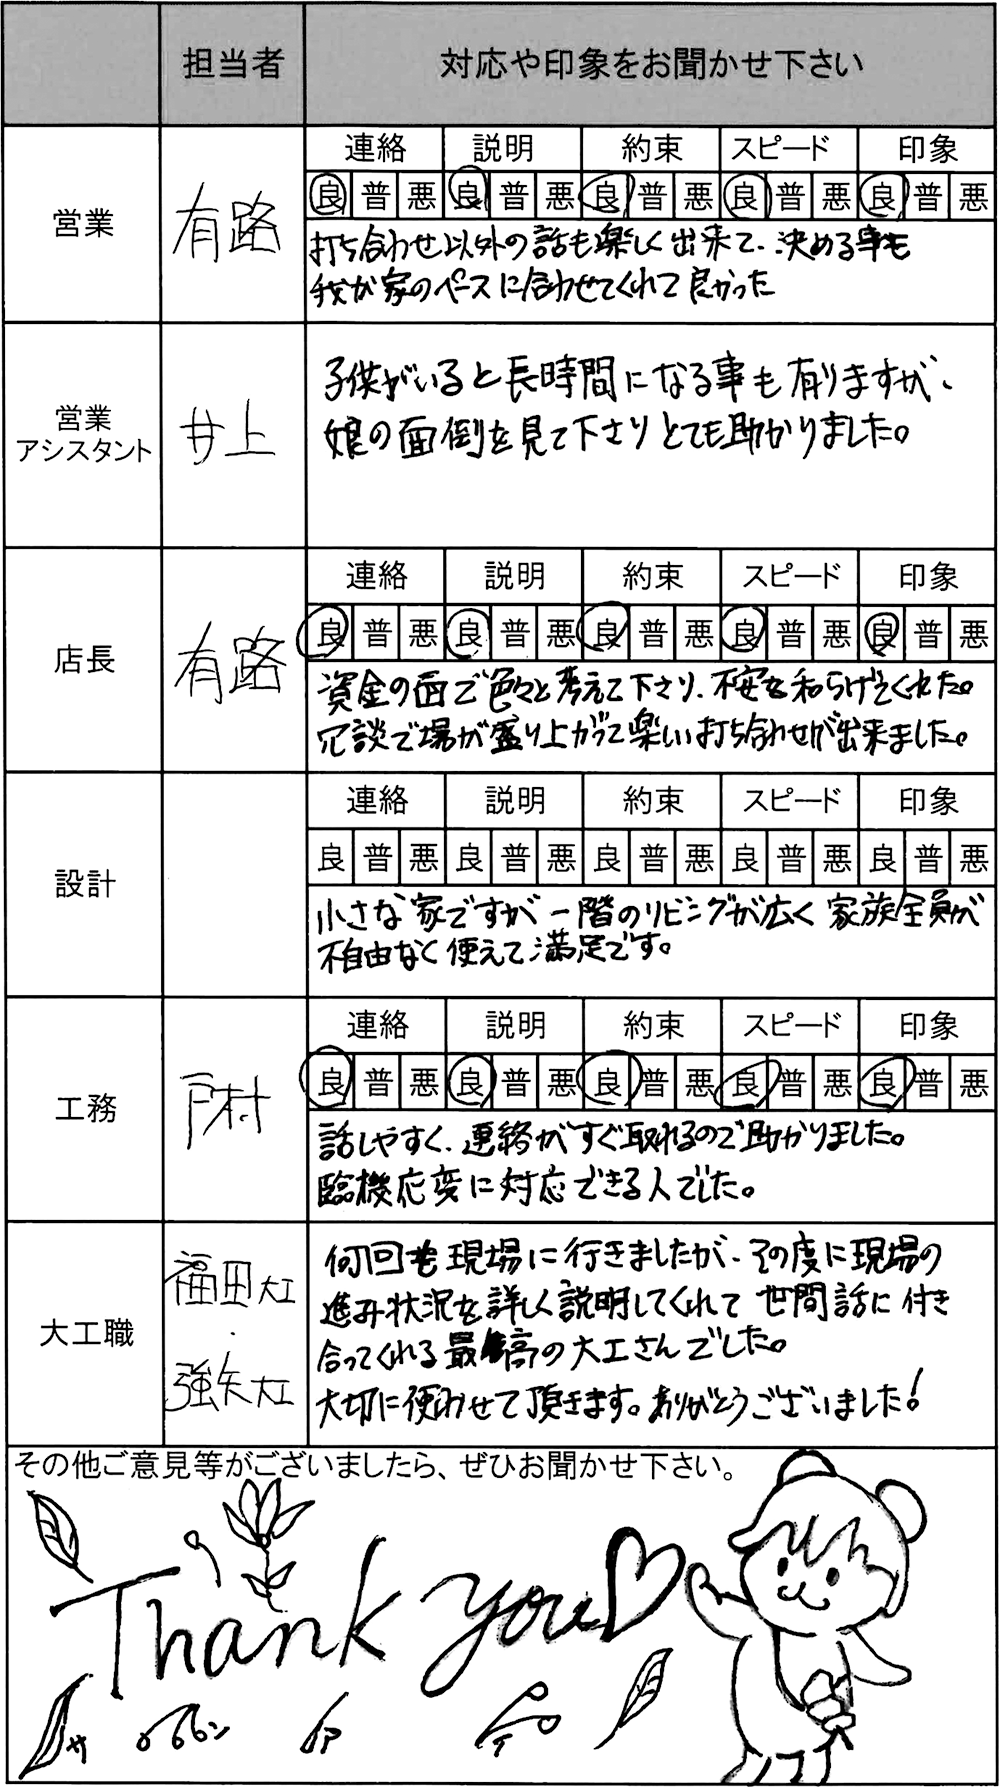 担当者 対応や印象をお聞かせ下さい
連絡 説明 約束 スピード 印象
良 普 悪 良 普 悪 良 普 悪 良 普 悪 良 普 悪
営業 有路
打ち合わせ以外の話も楽しく出来て、決める事も
我が家のペースに合わせてくれて良かった
営業
アシスタント
井上
子供がいると長時間になる事も有りますが、
娘の面倒を見て下さりとても助かりました。
連絡 説明 約束 スピード 印象
良 普 悪 良 普 悪 良 普 悪 良 普 悪 良 普 悪
店長 有路
資金の面で色々と考えて下さり、不安を和らげてくれた。
冗談で場が盛り上がって楽しい打ち合わせが出来ました。
連絡 説明 約束 スピード 印象
良 普 悪 良 普 悪 良 普 悪 良 普 悪 良 普 悪
設計
小さな家ですが一階のリビングが広く家族全員が
不自由なく使えて満足です。
連絡 説明 約束 スピード 印象
良 普 悪 良 普 悪 良 普 悪 良 普 悪 良 普 悪
工務 戸村
話しやすく、連絡がすぐ取れるので助かりました。
臨機応変に対応できる人でした。
大工職
福田大工
・
強矢大工
何回も現場に行きましたが、その度に現場の
進み状況を詳しく説明してくれて世間話に付き
合ってくれる最高の大工さんでした。
大切に使わせて頂きます。ありがとうございました!
その他ご意見等がございましたら、ぜひお聞かせ下さい。
Thank you